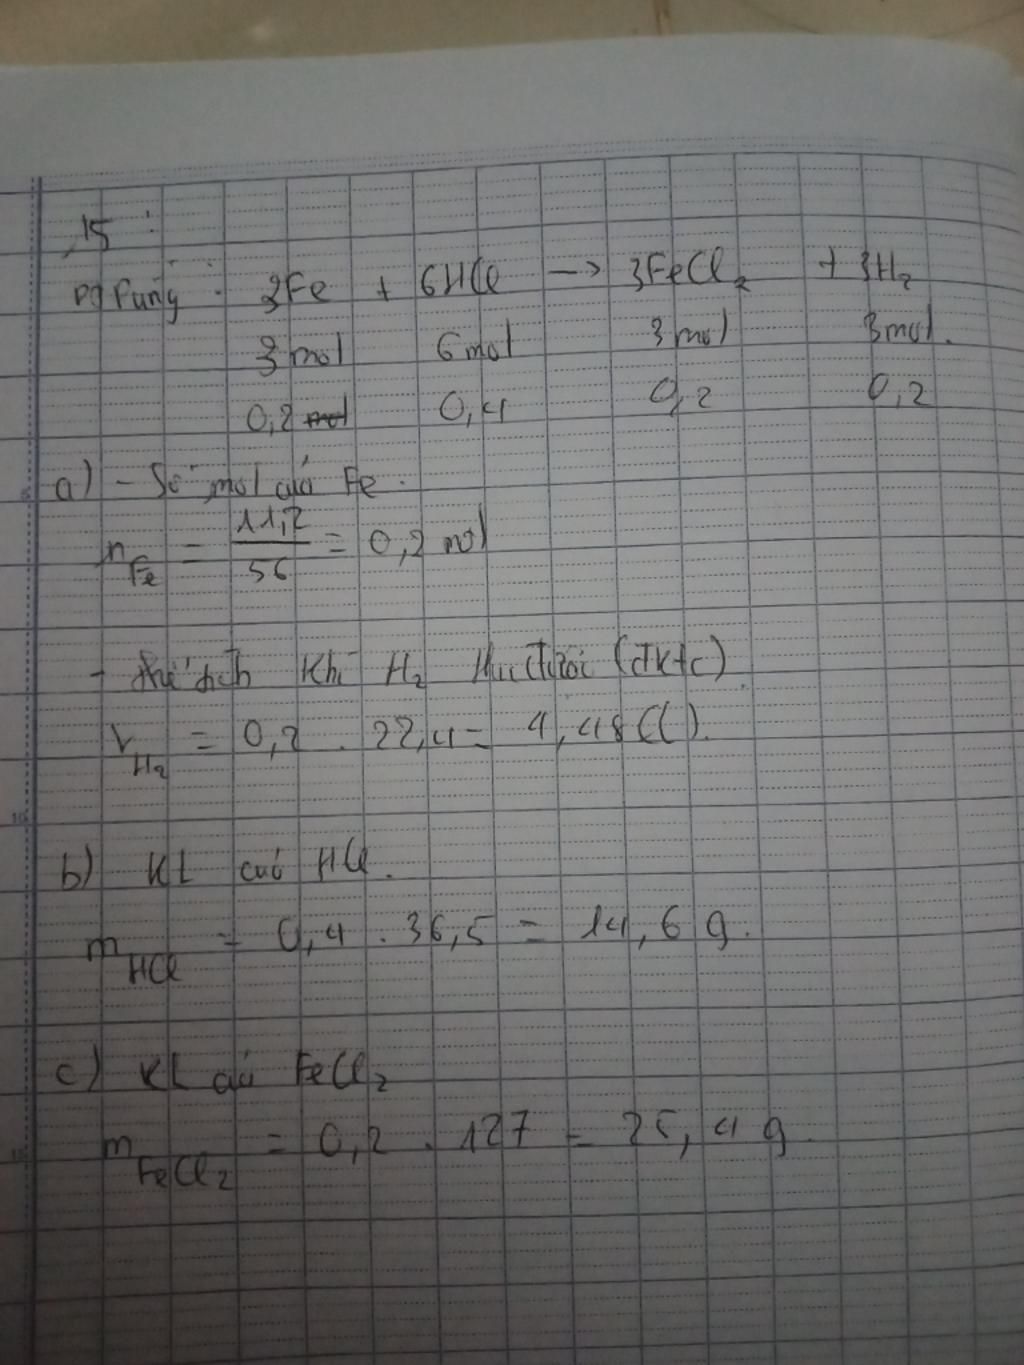 15:
PT Pứng: 3Fe + 6HCl → 3FeCl₂ + 3H₂
3mol 6mol 3mol 3mol.
0,2 0,4 0,2 0,2
a) - Số mol của Fe.
n_Fe = 11,2/56 = 0,2 mol
- thể tích Khí H₂ thu được (đktc).
V_H₂ = 0,2 . 22,4 = 4,48(l).
b) KL của HCl.
m_HCl = 0,4 . 36,5 = 14,6 g.
c) KL của FeCl₂
m_FeCl₂ = 0,2 . 127 = 25,4 g.